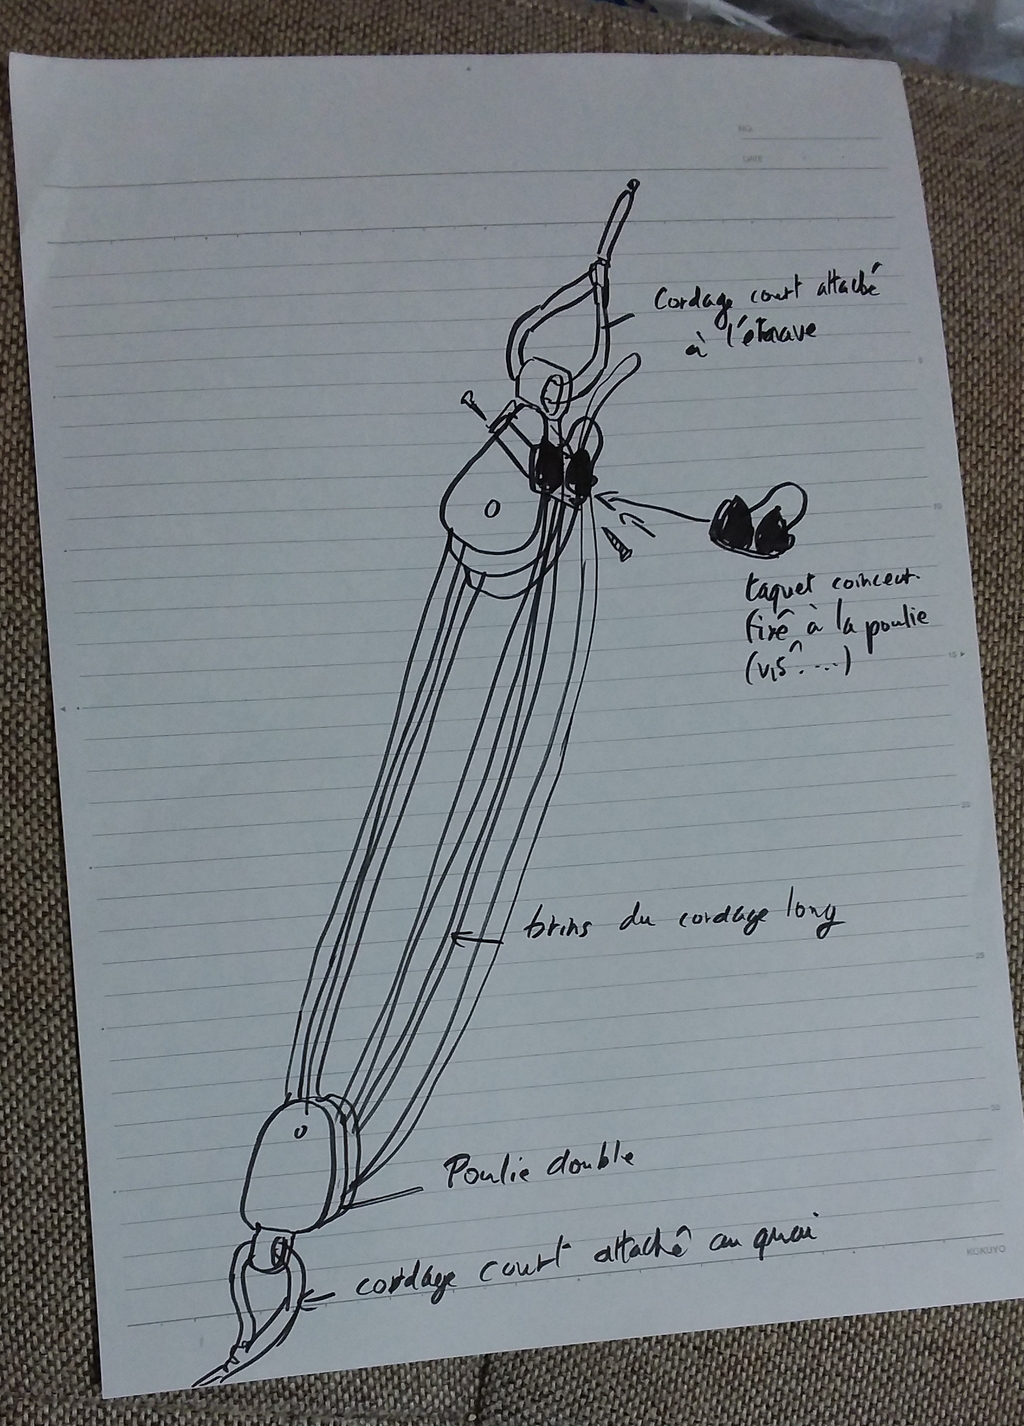 NO.
DATE
Cordage court attaché
à l'étrave
taquet coinceur
fixé à la poulie
(vis ....)
brins du cordage long
Poulie double
cordage court attaché au quai
KOKUYO